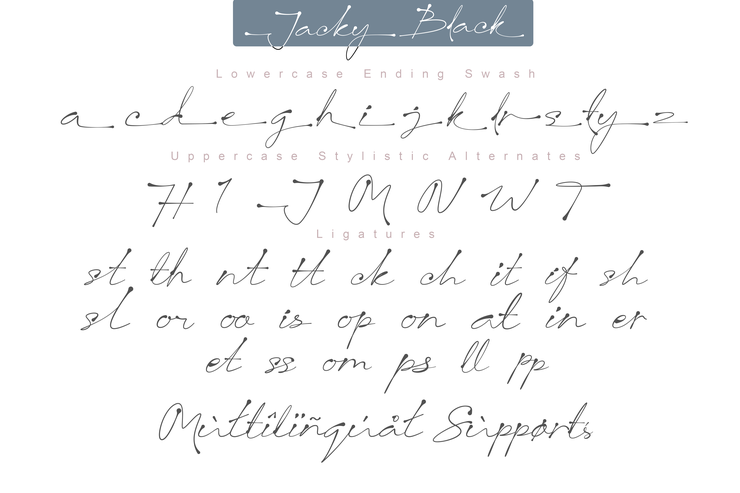 Jacky Black
Lowercase Ending Swash
a c d e g h i j k l r s t y z
Uppercase Stylistic Alternates
H I J M N W T
Ligatures
st th nt tt ck ch it if sh
sl or oo is op on at in er
et ss om ps ll pp
Mùttîlïñgúåt Sùppørts